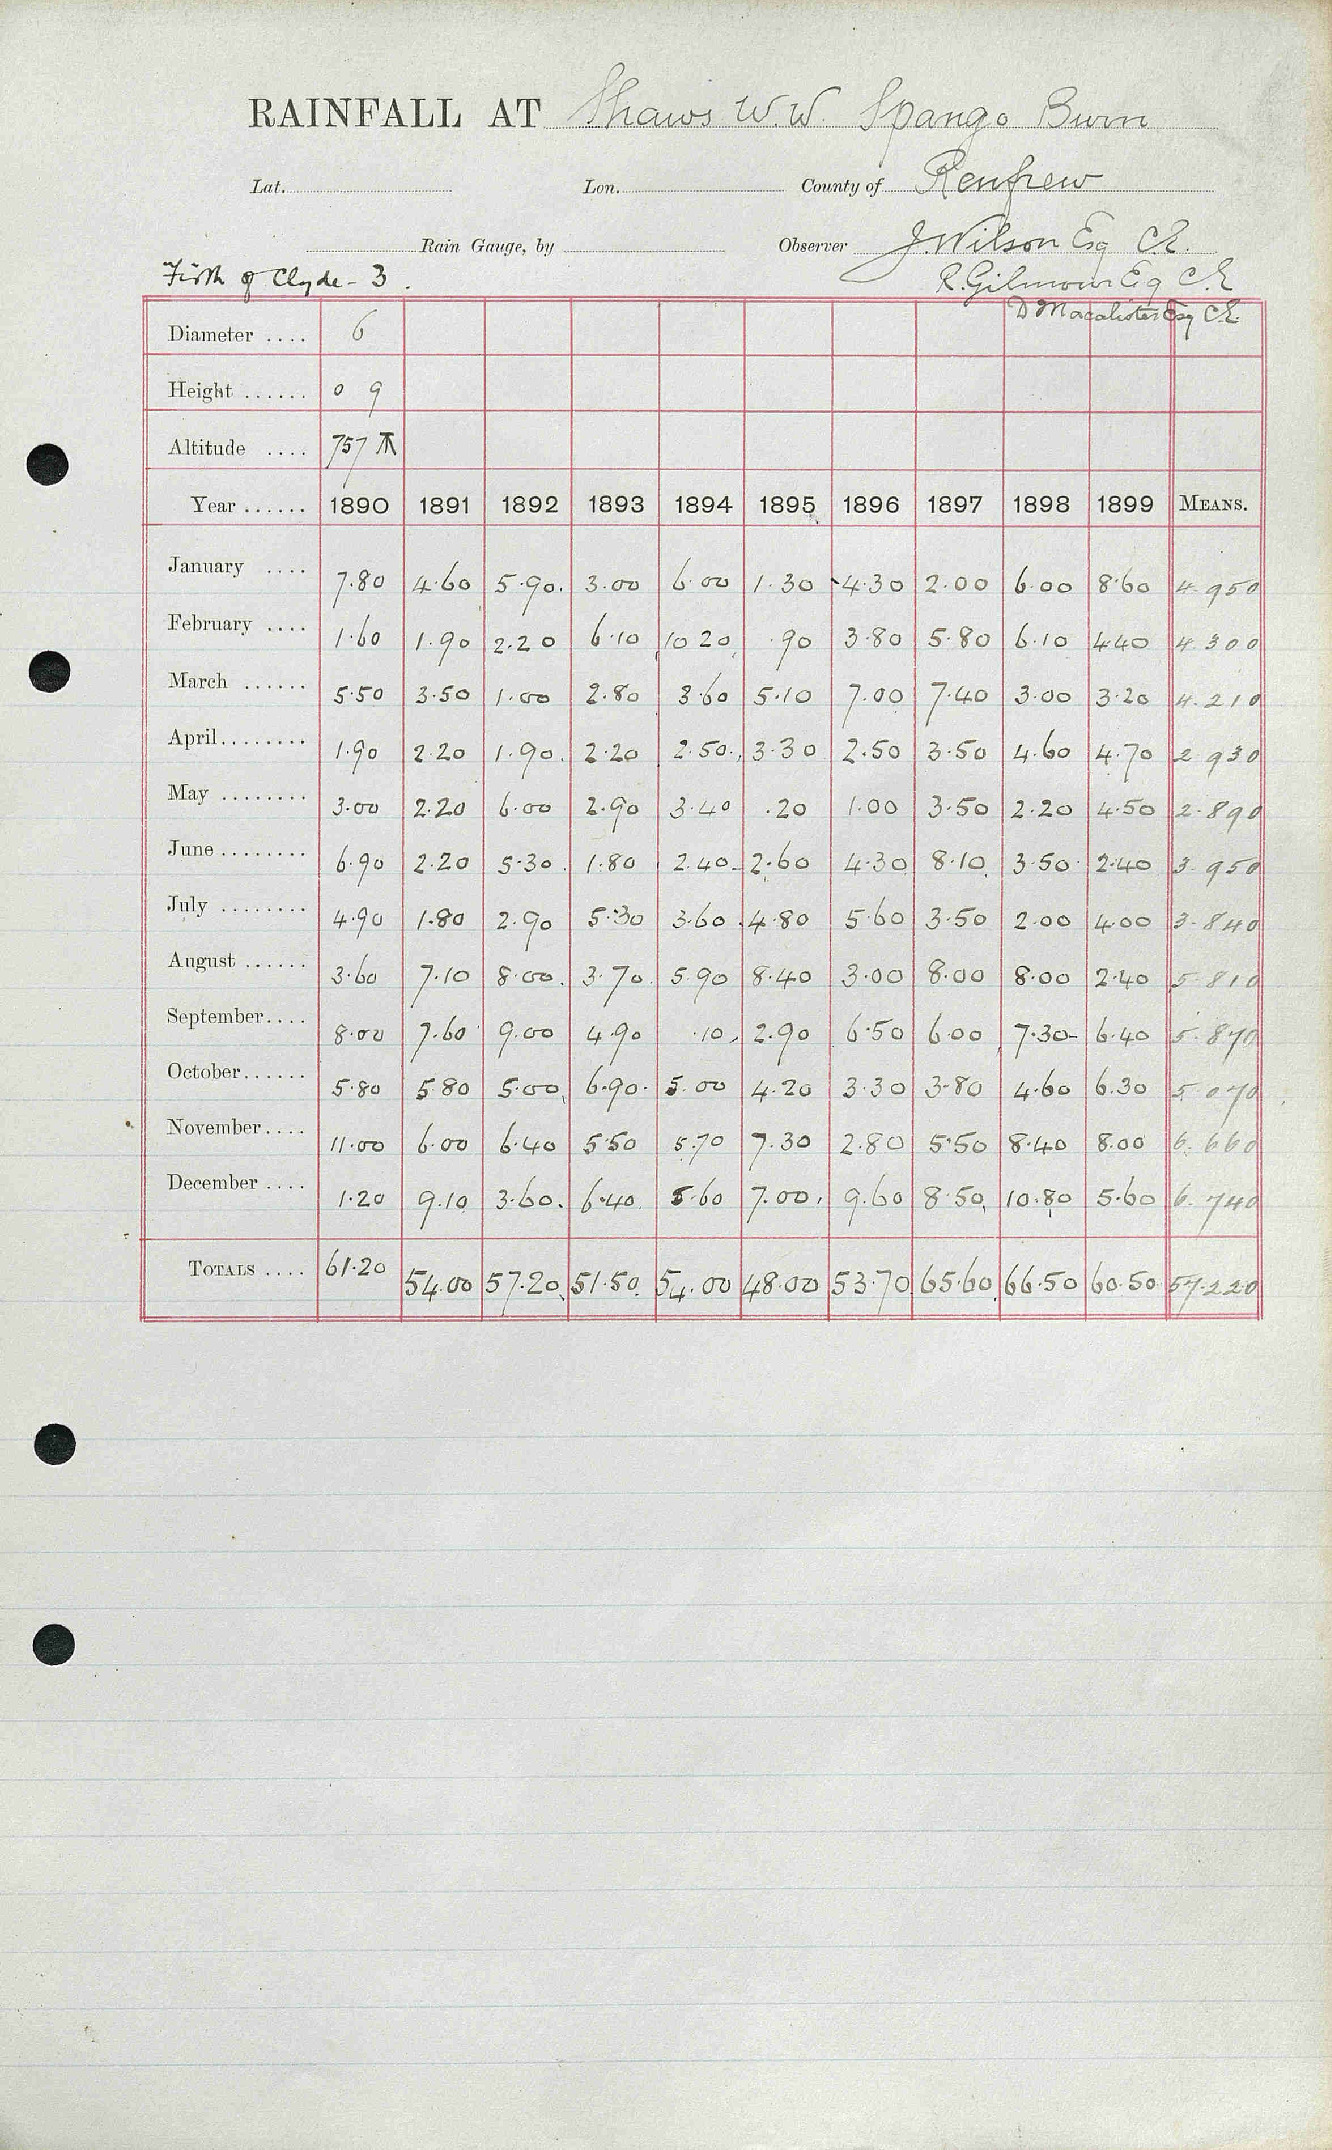 RAINFALL AT Shaws W.W. Spango Burn
Lat. Lon. County of Renfrew
Rain Gauge, by Observer J. Wilson Esq C.E.
Firth of Clyde - 3. R. Gilmour Esq C.E
D Macalister Esq C.E.
Diameter .... 6
Height ...... 0 9
Altitude .... 757
Year ...... 1890 1891 1892 1893 1894 1895 1896 1897 1898 1899 MEANS.
January .... 7.80 4.60 5.90 3.00 6.00 1.30 4.30 2.00 6.00 8.60 4.950
February .... 1.60 1.90 2.20 6.10 10.20 .90 3.80 5.80 6.10 4.40 4.300
March ...... 5.50 3.50 1.00 2.80 3.60 5.10 7.00 7.40 3.00 3.20 4.210
April........ 1.90 2.20 1.90 2.20 2.50 3.30 2.50 3.50 4.60 4.70 2.930
May ........ 3.00 2.20 6.00 2.90 3.40 .20 1.00 3.50 2.20 4.50 2.890
June ........ 6.90 2.20 5.30 1.80 2.40 2.60 4.30 8.10 3.50 2.40 3.950
July ........ 4.90 1.80 2.90 5.30 3.60 4.80 5.60 3.50 2.00 4.00 3.840
August ...... 3.60 7.10 8.00 3.70 5.90 8.40 3.00 8.00 8.00 2.40 5.810
September.... 8.00 7.60 9.00 4.90 .10 2.90 6.50 6.00 7.30 6.40 5.870
October...... 5.80 5.80 5.00 6.90 5.00 4.20 3.30 3.80 4.60 6.30 5.070
November.... 11.00 6.00 6.40 5.50 5.70 7.30 2.80 5.50 8.40 8.00 6.660
December .... 1.20 9.10 3.60 6.40 5.60 7.00 9.60 8.50 10.80 5.60 6.740
TOTALS .... 61.20 54.00 57.20 51.50 54.00 48.00 53.70 65.60 66.50 60.50 57.220